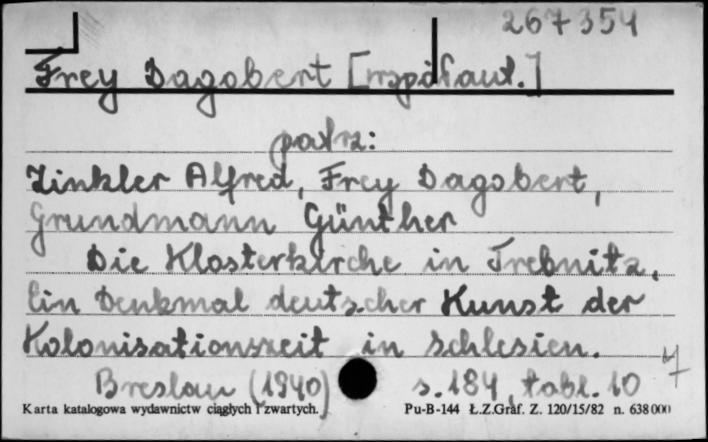 267354
Frey Dagobert [współaut.]
patrz:
Zinkler Alfred, Frey Dagobert,
Grundmann Günther
Die Klosterkirche in Trebnitz.
Ein Denkmal deutscher Kunst der
Kolonisationszeit in Schlesien.
Breslau (1940) s. 184, tabl. 10
Karta katalogowa wydawnictw ciągłych i zwartych. Pu-B-144 Ł.Z.Graf. Z. 120/15/82 n. 638 000